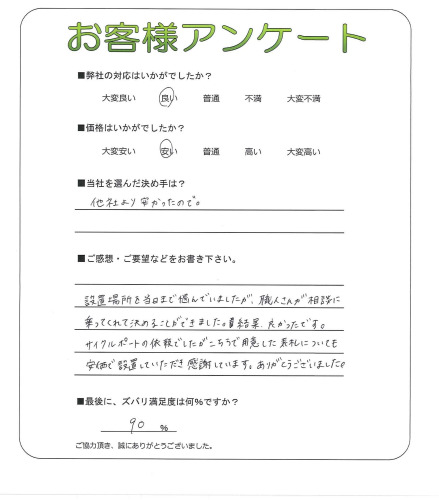 お客様アンケート
■弊社の対応はいかがでしたか?
大変良い 良い 普通 不満 大変不満
■価格はいかがでしたか?
大変安い 安い 普通 高い 大変高い
■当社を選んだ決め手は?
他社より安かったので。
■ご感想・ご要望などをお書き下さい。
設置場所を当日まで悩んでいましたが、職人さんが相談に
乗ってくれて決めることができました。結果、良かったです。
サイクルポートの依頼でしたがこちらで用意した表札についても
安価で設置していただき感謝しています。ありがとうございました。
■最後に、ズバリ満足度は何%ですか?
90 %
ご協力頂き、誠にありがとうございました。